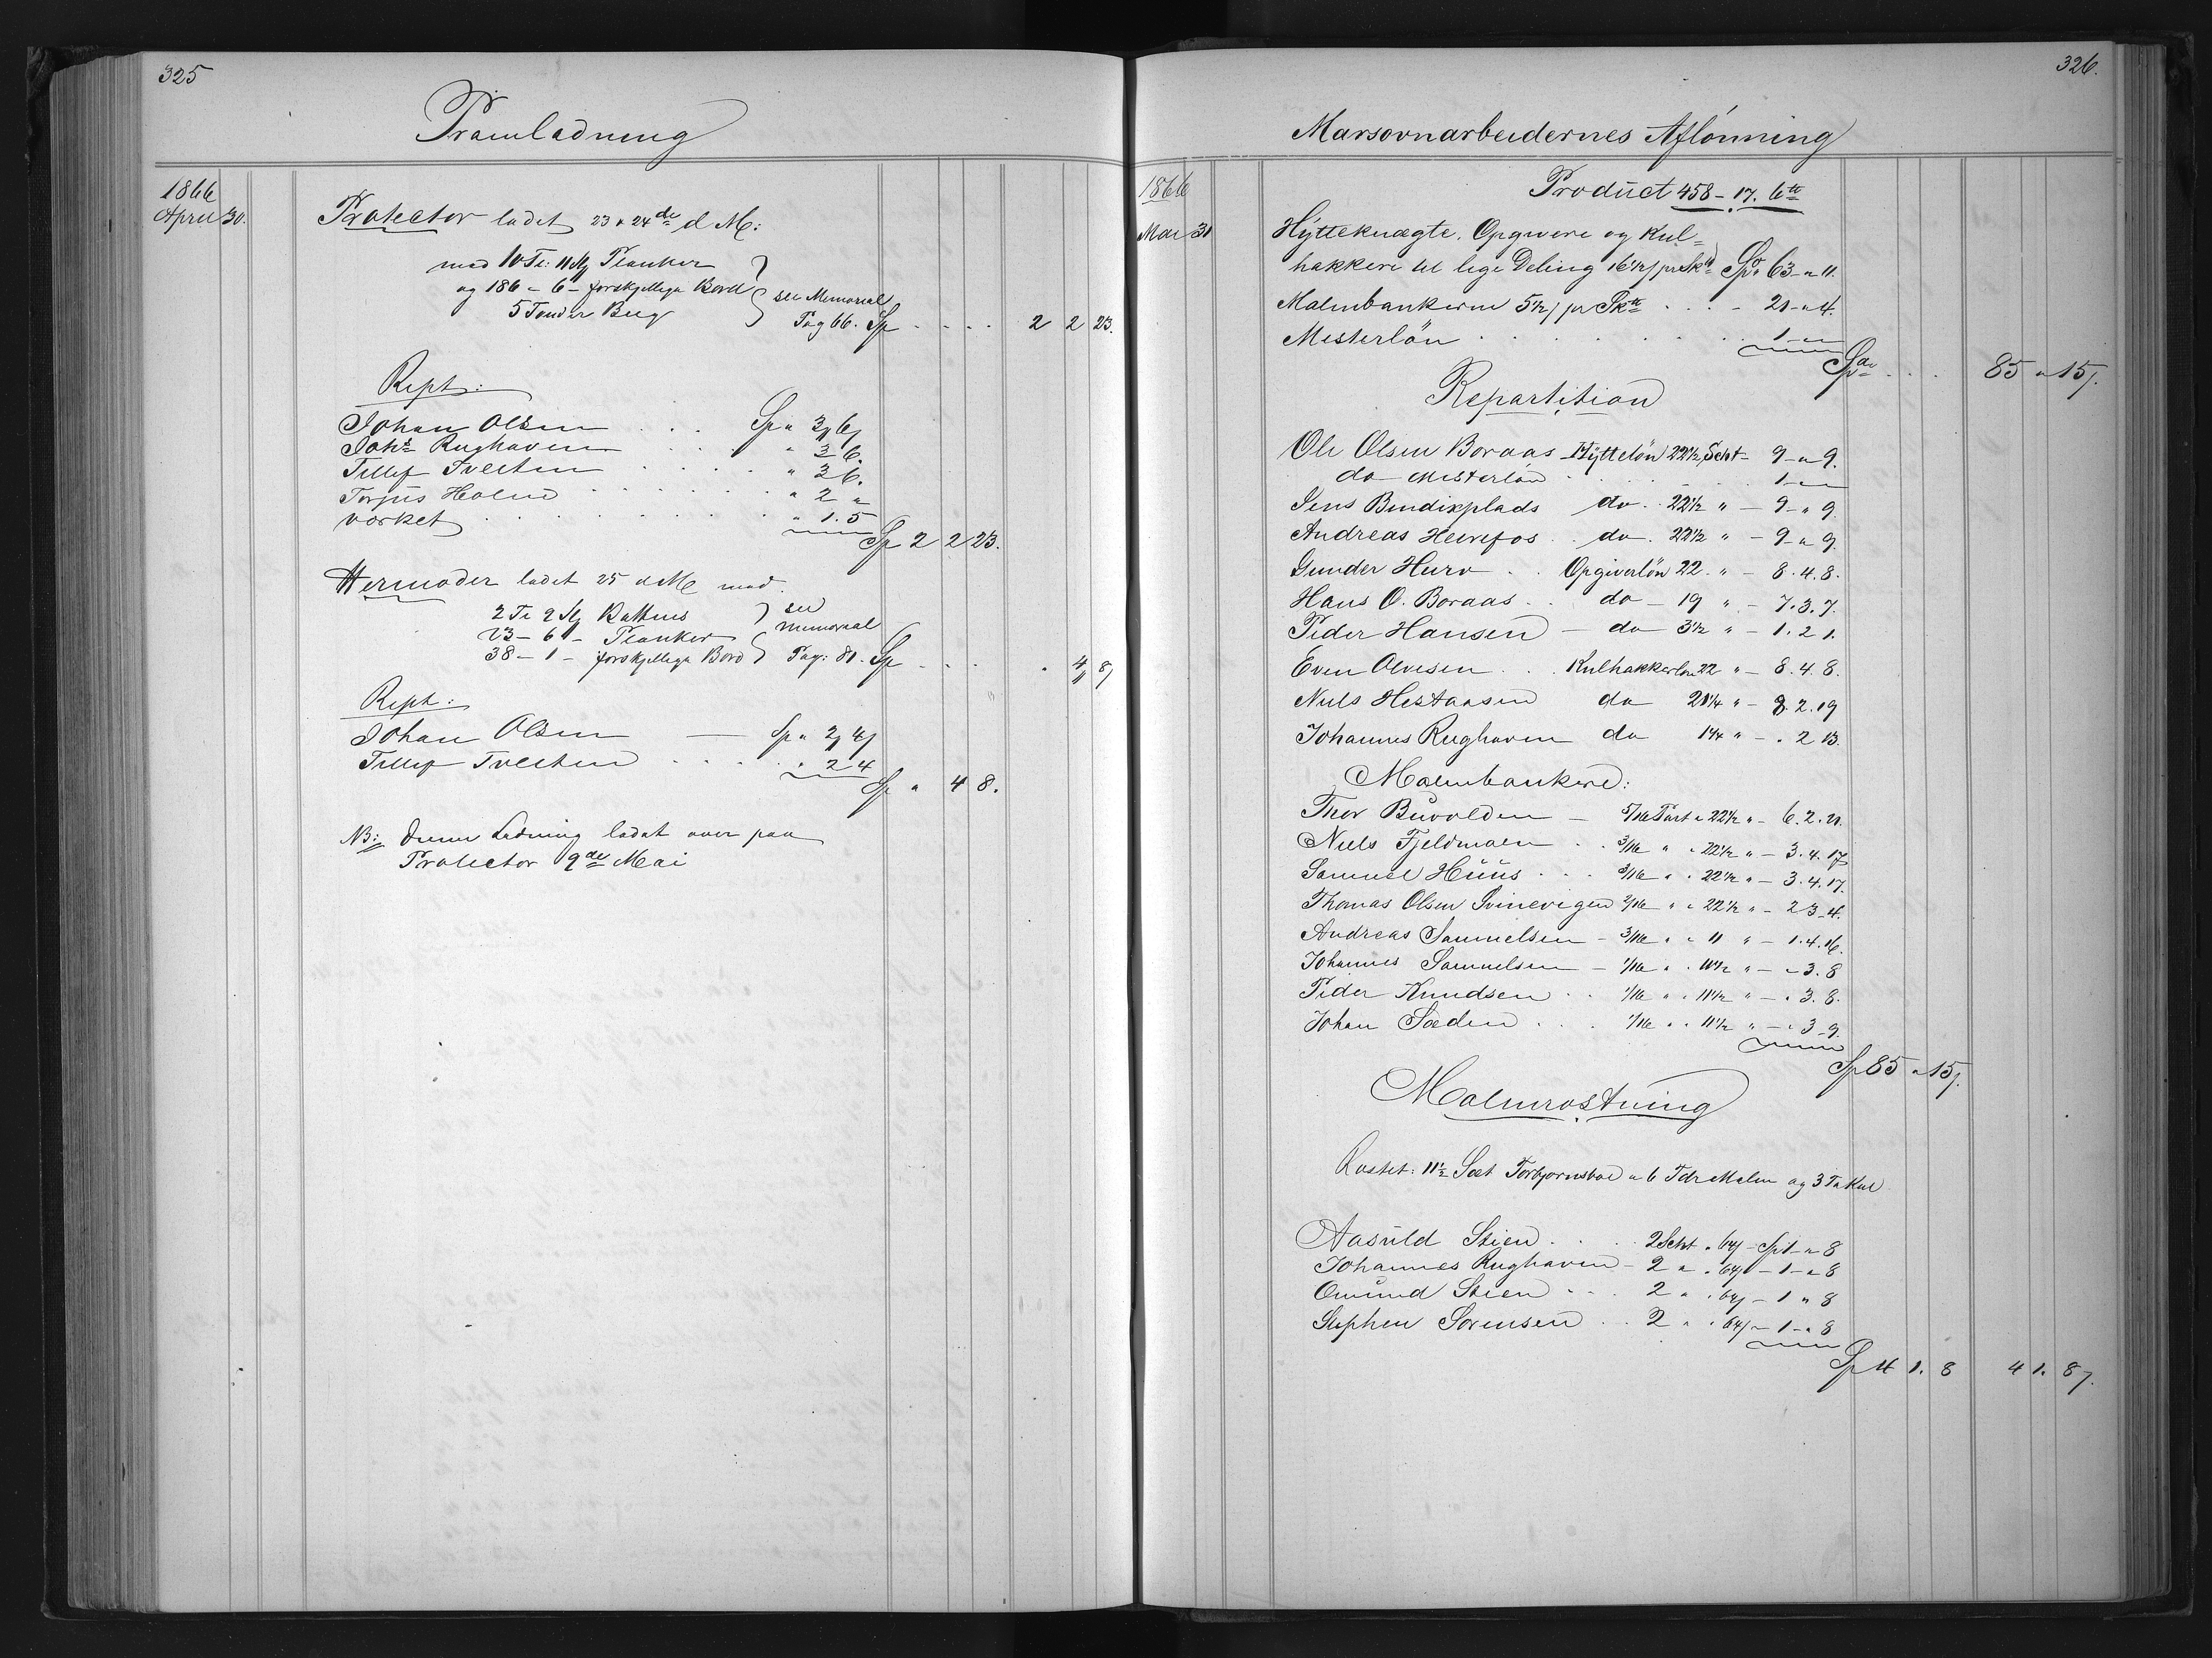 325
Pramladning
1866
April 30.
Protector ladet 23 & 24de d M:
med 10 Tr: 11 Stg Planker
og 186 - 6 - forskjellige Bord
5 Tønder Beeg
see Memorial
Pag 66. Sp . . . . 2 2 23.
Rept:
Johan Olsen . . . Sp " 3 6
Johs Rughaven . . . " 3 6.
Tellef Tveeten . . . . . " 3 6.
Torjus Holen . . . . . . " 2 "
Værket . . . . . . . . " 1. 5
Sp 2 2 23.
Hermoder ladet 25 d M med
2 Tr 2 Stg Battens
23 - 6 - Planker
38 - 1 - forskjellige Bord
see Memorial
Pag: 81. Sp . . . . 4 8
Rept:
Johan Olsen — Sp " 2 4
Tellef Tveeten . . . . " 2 4
Sp " 4 8.
NB: Denne Ladning ladet over paa
Protector 9de Mai
326.
Marsovnarbeidernes Aflønning
1866
Mai 31
Product 458 - 17. 6
Hytteknægte, Opgivere og Kul=
hakkere til lige Deling 16 1/2 pr Sk Sp 63 - " 11.
Malmbankerne 5 1/2 pr Sk . . . - 21 - " 4.
Mesterløn . . . . . . . 1 - " "
Sp . . . 85 " 15
Repartition
Ole Olsen Boraas - Hytteløn 22 1/2 Scht - 9 - " 9.
do Mesterløn . . . . . . 1 - " "
Jens Bendixplads do. 22 1/2 " - 9 - " 9.
Andreas Heirefos . . do. 22 1/2 " - 9 - " 9.
Gunder Huro . . Opgiverløn 22. " - 8. 4. 8.
Hans O. Boraas . . do - 19 " - 7. 3. 7.
Peder Hansen - do 3 1/2 " - 1. 2 1.
Even Olvesen . . Kulhakkerløn 22 " - 8. 4. 8.
Niels Hestaasen do 21 1/4 " - 8. 2. 19
Johannes Rughaven do 1 1/4 " - . 2 13.
Malmbankere:
Thor Buvolden - 5/16 Part a 22 1/2 " - 6. 2. 21.
Niels Fjeldmoen . . 3/16 " " 22 1/2 " - 3. 4. 17
Samuel Huus . . . 3/16 " " 22 1/2 " - 3. 4. 17.
Thomas Olsen Svinevigen 2/16 " " 22 1/2 " - 2 3 - 4.
Andreas Samuelsen - 3/16 " " 11 " - 1. 4. 16.
Johannes Samuelsen - 1/16 " " 11 1/2 " - " 3. 8
Peder Knudsen . . 1/16 " " 11 1/2 " - " 3. 8.
Johan Sæden . . . 1/16 " " 11 1/2 " - " 3 - 9.
Sp 85 " 15
Malmrostning
Rostet: 11 1/2 Sæt Torbjørnsboe a 6 Tdr Malm og 3 Tr Kul
Aasuld Stien . . . . 2 Scht a 64 - Sp 1 - " 8
Johannes Rughaven - 2 " " 64 - 1 - " 8
Omund Stien . . . 2 " " 64 - 1 " 8
Stephen Sørensen . . 2 " " 64 - 1 - " 8
Sp 4 1. 8 4 1. 8